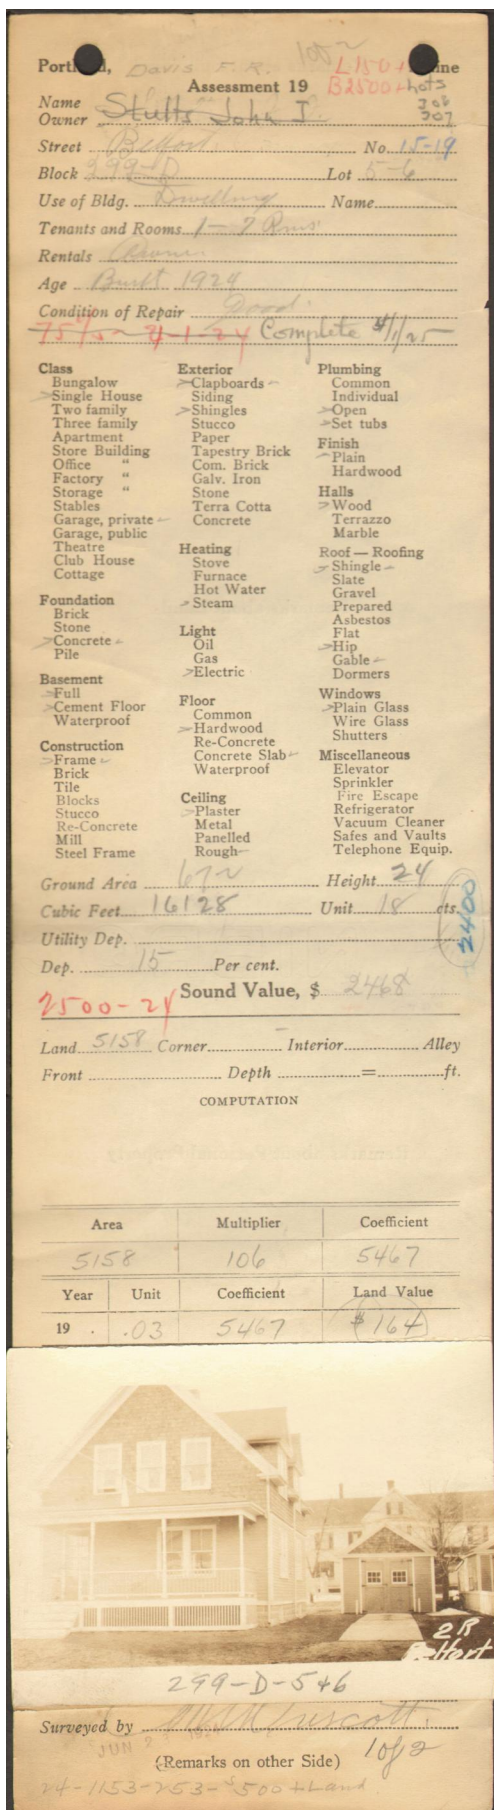 Portland, Davis F. R. Maine
L150+
Assessment 19 B2500+ Lots
306
307
Name
Owner Stults John J.
Street Belfort No. 15-19
Block 299-D Lot 5-6
Use of Bldg. Dwelling Name
Tenants and Rooms 1-7 Rms
Rentals Owner
Age Built 1924
Condition of Repair Good.
75% 4-1-24 Complete 4/1/25
Class
Bungalow
Single House
Two family
Three family
Apartment
Store Building
Office "
Factory "
Storage "
Stables
Garage, private
Garage, public
Theatre
Club House
Cottage
Foundation
Brick
Stone
Concrete
Pile
Basement
Full
Cement Floor
Waterproof
Construction
Frame
Brick
Tile
Blocks
Stucco
Re-Concrete
Mill
Steel Frame
Exterior
Clapboards
Siding
Shingles
Stucco
Paper
Tapestry Brick
Com. Brick
Galv. Iron
Stone
Terra Cotta
Concrete
Heating
Stove
Furnace
Hot Water
Steam
Light
Oil
Gas
Electric
Floor
Common
Hardwood
Re-Concrete
Concrete Slab
Waterproof
Ceiling
Plaster
Metal
Panelled
Rough
Plumbing
Common
Individual
Open
Set tubs
Finish
Plain
Hardwood
Halls
Wood
Terrazzo
Marble
Roof — Roofing
Shingle
Slate
Gravel
Prepared
Asbestos
Flat
Hip
Gable
Dormers
Windows
Plain Glass
Wire Glass
Shutters
Miscellaneous
Elevator
Sprinkler
Fire Escape
Refrigerator
Vacuum Cleaner
Safes and Vaults
Telephone Equip.
Ground Area 672 Height 24
Cubic Feet 16128 Unit 18 cts.
2400
Utility Dep.
Dep. 15 Per cent.
Sound Value, $ 2468
2500-24
Land 5158 Corner Interior Alley
Front Depth = ft.
COMPUTATION
Area Multiplier Coefficient
5158 106 5467
Year Unit Coefficient Land Value
19 . .03 5467 $164
2R
299-D-5+6
Surveyed by
JUN 2
(Remarks on other Side) 1 of 2
24-1153-253-$500+Land